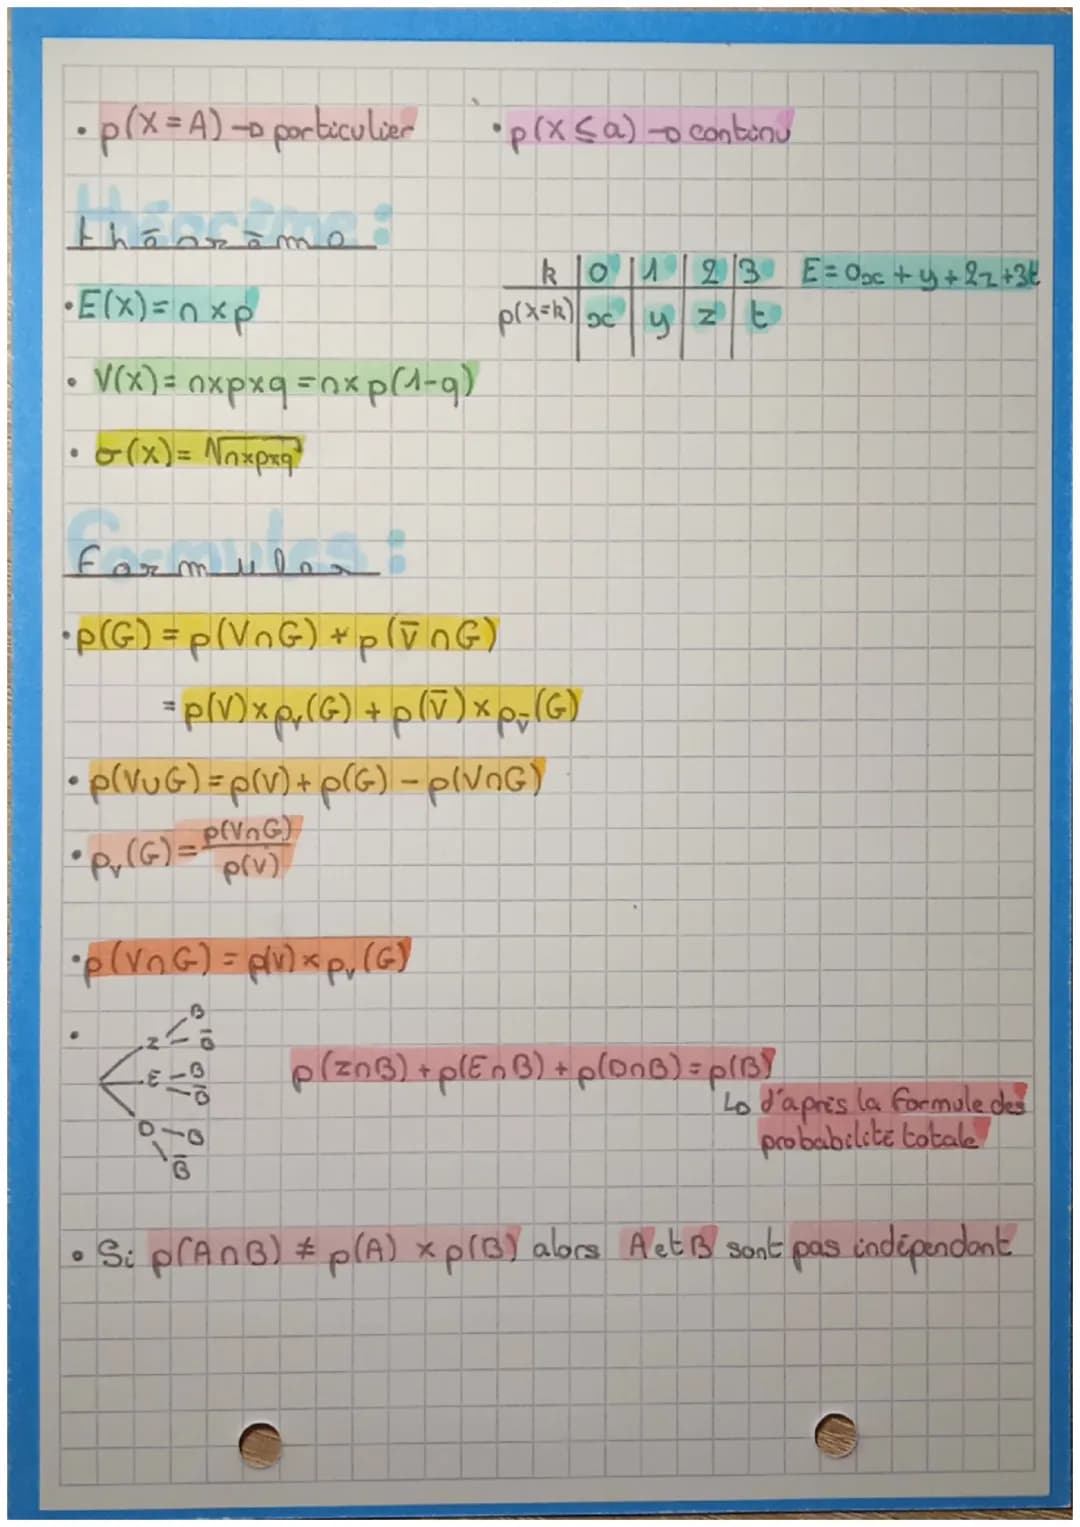 • p(X=A) → particulier
• p(X ≤ a) → continu
théorème :
• E(X) = n × p
k | 0 | 1 | 2 | 3
p(X=k) | x | y | z | t
E = 0x + y + 2z + 3t
• V(X) = n×p×q = n×p(1-q)
• σ(X) = √n×p×q
Formules :
• p(G) = p(V∩G) + p(V̅∩G)
= p(V) × pᵥ(G) + p(V̅) × p_V̅(G)
• p(V∪G) = p(V) + p(G) - p(V∩G)
• pᵥ(G) = p(V∩G) / p(V)
• p(V∩G) = p(V) × pᵥ(G)
•
B
Z B̅
E B
B̅
D B
B̅
p(Z∩B) + p(E∩B) + p(D∩B) = p(B)
↳ d'après la formule des
probabilité totale
• Si p(A∩B) ≠ p(A) × p(B) alors A et B sont pas indépendant